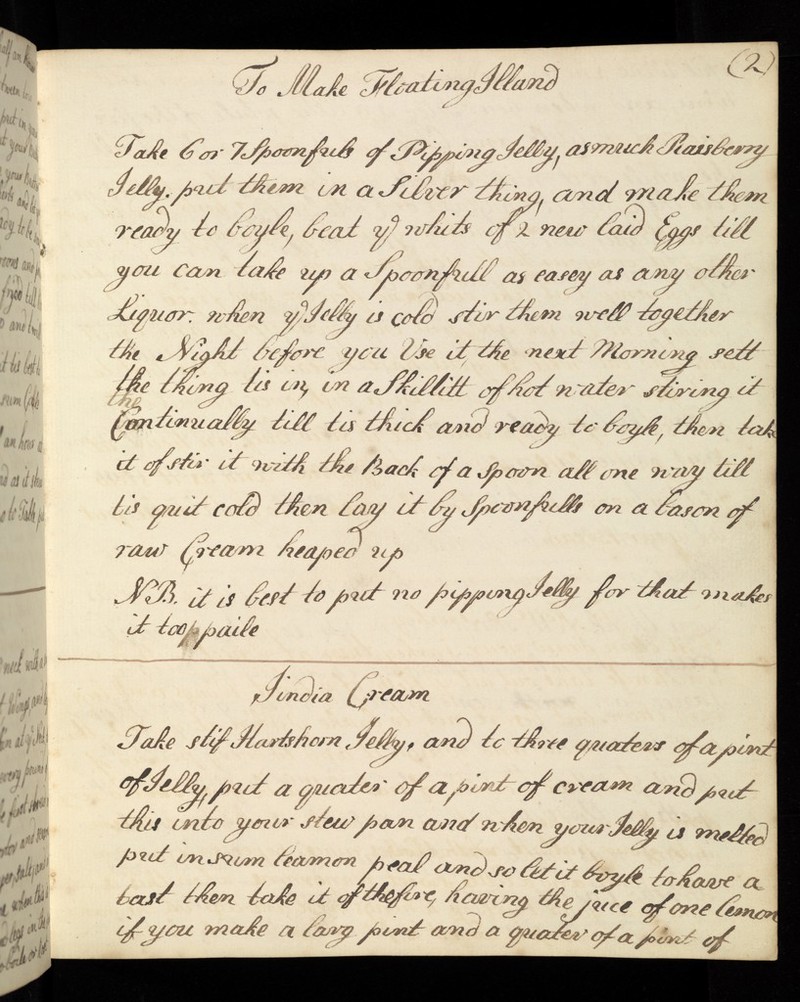 (2)
To Make Floating Illand
Take 6 or 7 Spoonfuls of Pipping Jelly, as much Raisberry
Jelly. put them in a Silver thing, and make them
ready to boyle, beat ye whits of 2 new laid Eggs till
you can take up a Spoonfull as easey as any other
Liquor. when ye Jelly is cold stir them well together
the Night before you Use it, the next Morning sett
the thing tis in, in a Skillitt of hot water stiring it
the
Continually till tis thick and ready to boyle, then take
it of stir it with the Back of a Spoon all one way till
tis quit cold then lay it by Spoonfulls on a bason of
raw Cream heaped up
N.B. it is best to put no pipping Jelly for that makes
it too paile
Jindia Cream
Take stif Hartshorn Jelly, and to three quaters of a pint
of Jelly, put a quater of a pint of cream and put
this into your stew pan and when your Jelly is melted
put in sum leamon peal and so let it boyle to have a
tast then take it of the fire, having the juce of one lemon
if you make a larg pint and a quater of a pint of